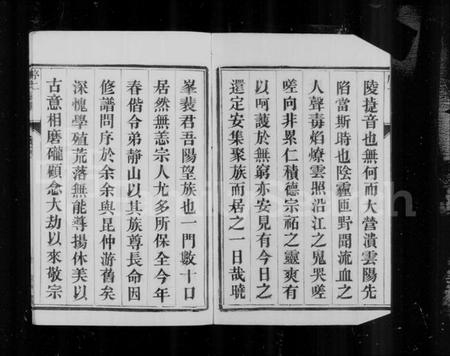 陵捷音也無何而大營潰雲陽先
陷當斯時也陰霾匝野聞流血之
人聲毒焰燎雲照沿江之鬼哭嗟
嗟向非累仁積德宗祏之靈爽有
以呵護於無窮亦安見有今日之
還定安集聚族而居之一日哉曉
峯裴君吾陽望族也一門數十口
居然無恙宗人尤多所保全今年
春偕令弟靜山以其族尊長命因
修譜問序於余余與昆仲游舊矣
深愧學殖荒落無能導揚休美以
古意相磨礲顧念大劫以來敬宗
序二